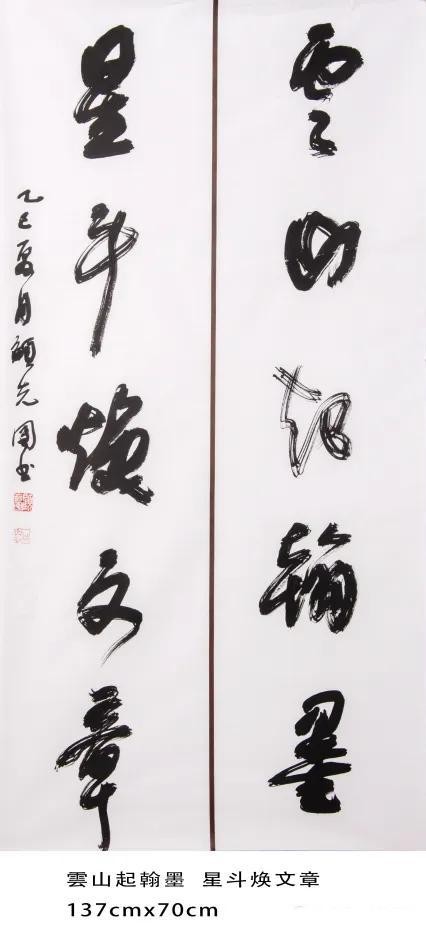 雲山起翰墨
星斗焕文章
乙巳夏月顧克國书
雲山起翰墨 星斗焕文章
137cmx70cm